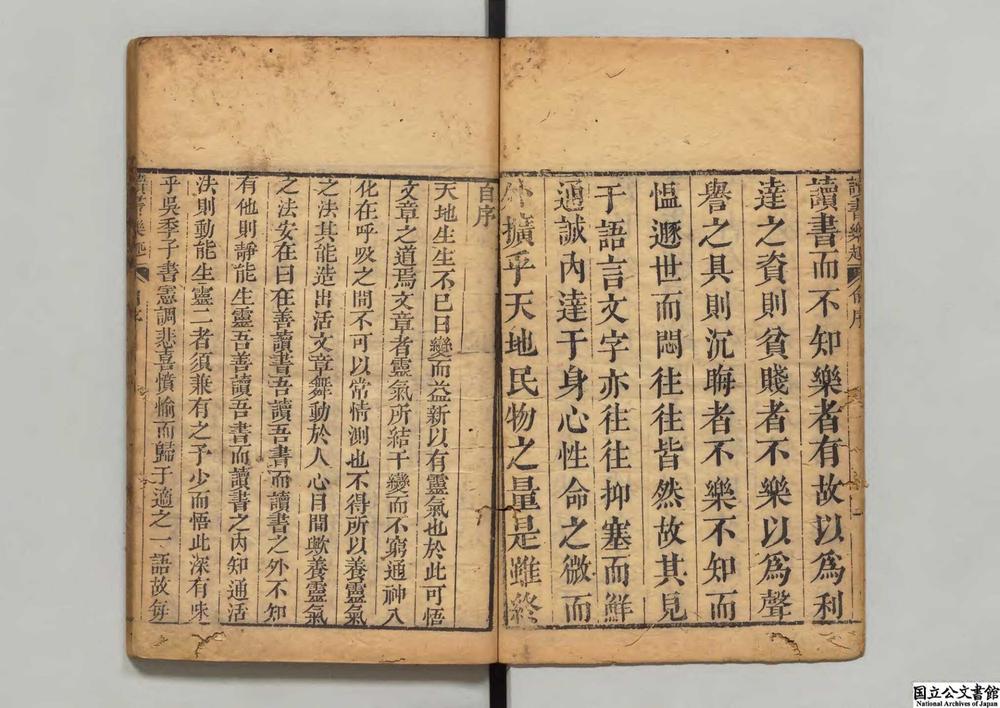 讀書樂趣
序
讀書而不知樂者有故以為利
達之資則貧賤者不樂以為聲
譽之具則沉晦者不樂不知而
慍遯世而悶往往皆然故其見
于語言文字亦往往抑塞而鮮
通誠內達于身心性命之微而
外擴乎天地民物之量是雖終
自序
天地生生不已日變而益新以有靈氣也於此可悟
文章之道焉文章者靈氣所結千變而不窮通神入
化在呼吸之間不可以常情測也不得所以養靈氣
之法其能造出活文章舞動於人心目間歟養靈氣
之法安在曰在善讀書吾讀吾書而讀書之外不知
有他則靜能生靈吾善讀吾書而讀書之內知通活
法則動能生靈二者須兼有之予少而悟此深有味
乎吳季子書憲調悲喜憤愉而歸于適之一語故每
讀書樂趣
国立公文書館
National Archives of Japan